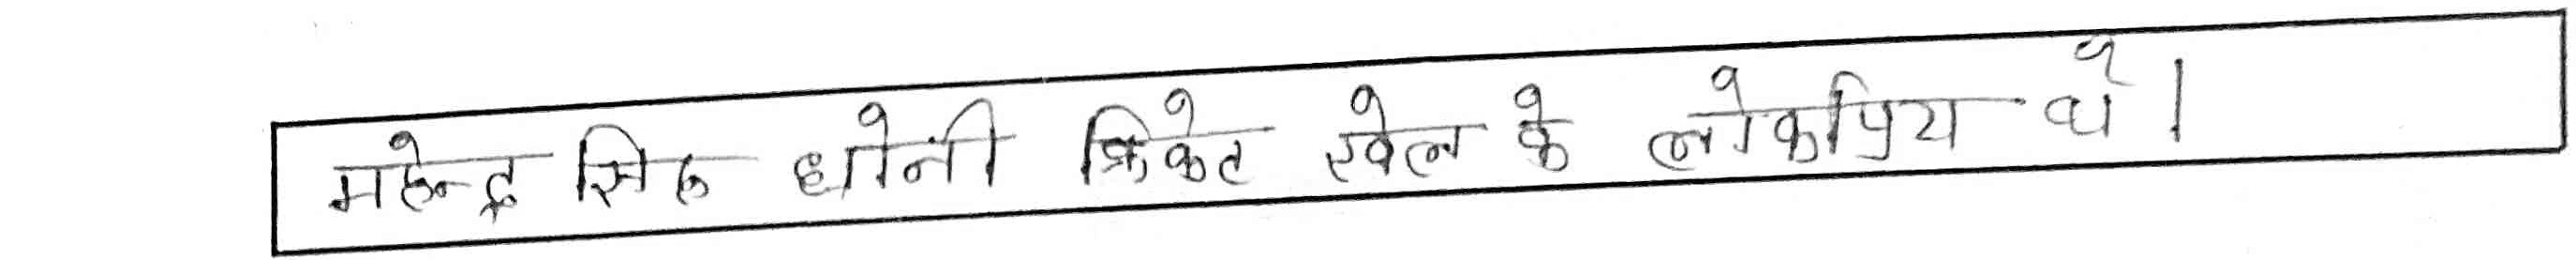 महेन्द्र सिह धोनी क्रिकेट खेल के लोकप्रिय थे।